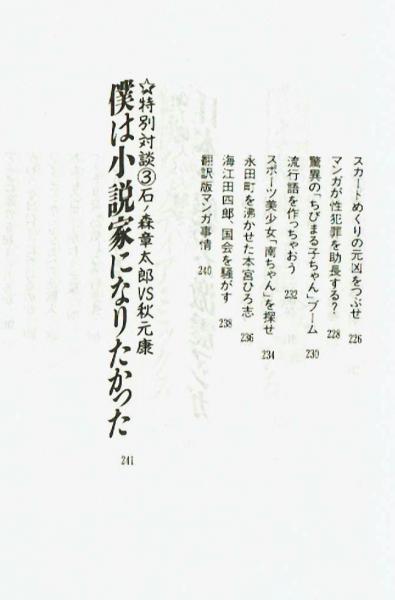 スカートめくりの元凶をつぶせ 226
マンガが性犯罪を助長する? 228
驚異の「ちびまる子ちゃん」ブーム 230
流行語を作っちゃおう 232
スポーツ美少女「南ちゃん」を探せ 234
永田町を沸かせた本宮ひろ志 236
海江田四郎、国会を騒がす 238
翻訳版マンガ事情 240
☆特別対談③石ノ森章太郎VS秋元康
僕は小説家になりたかった 241